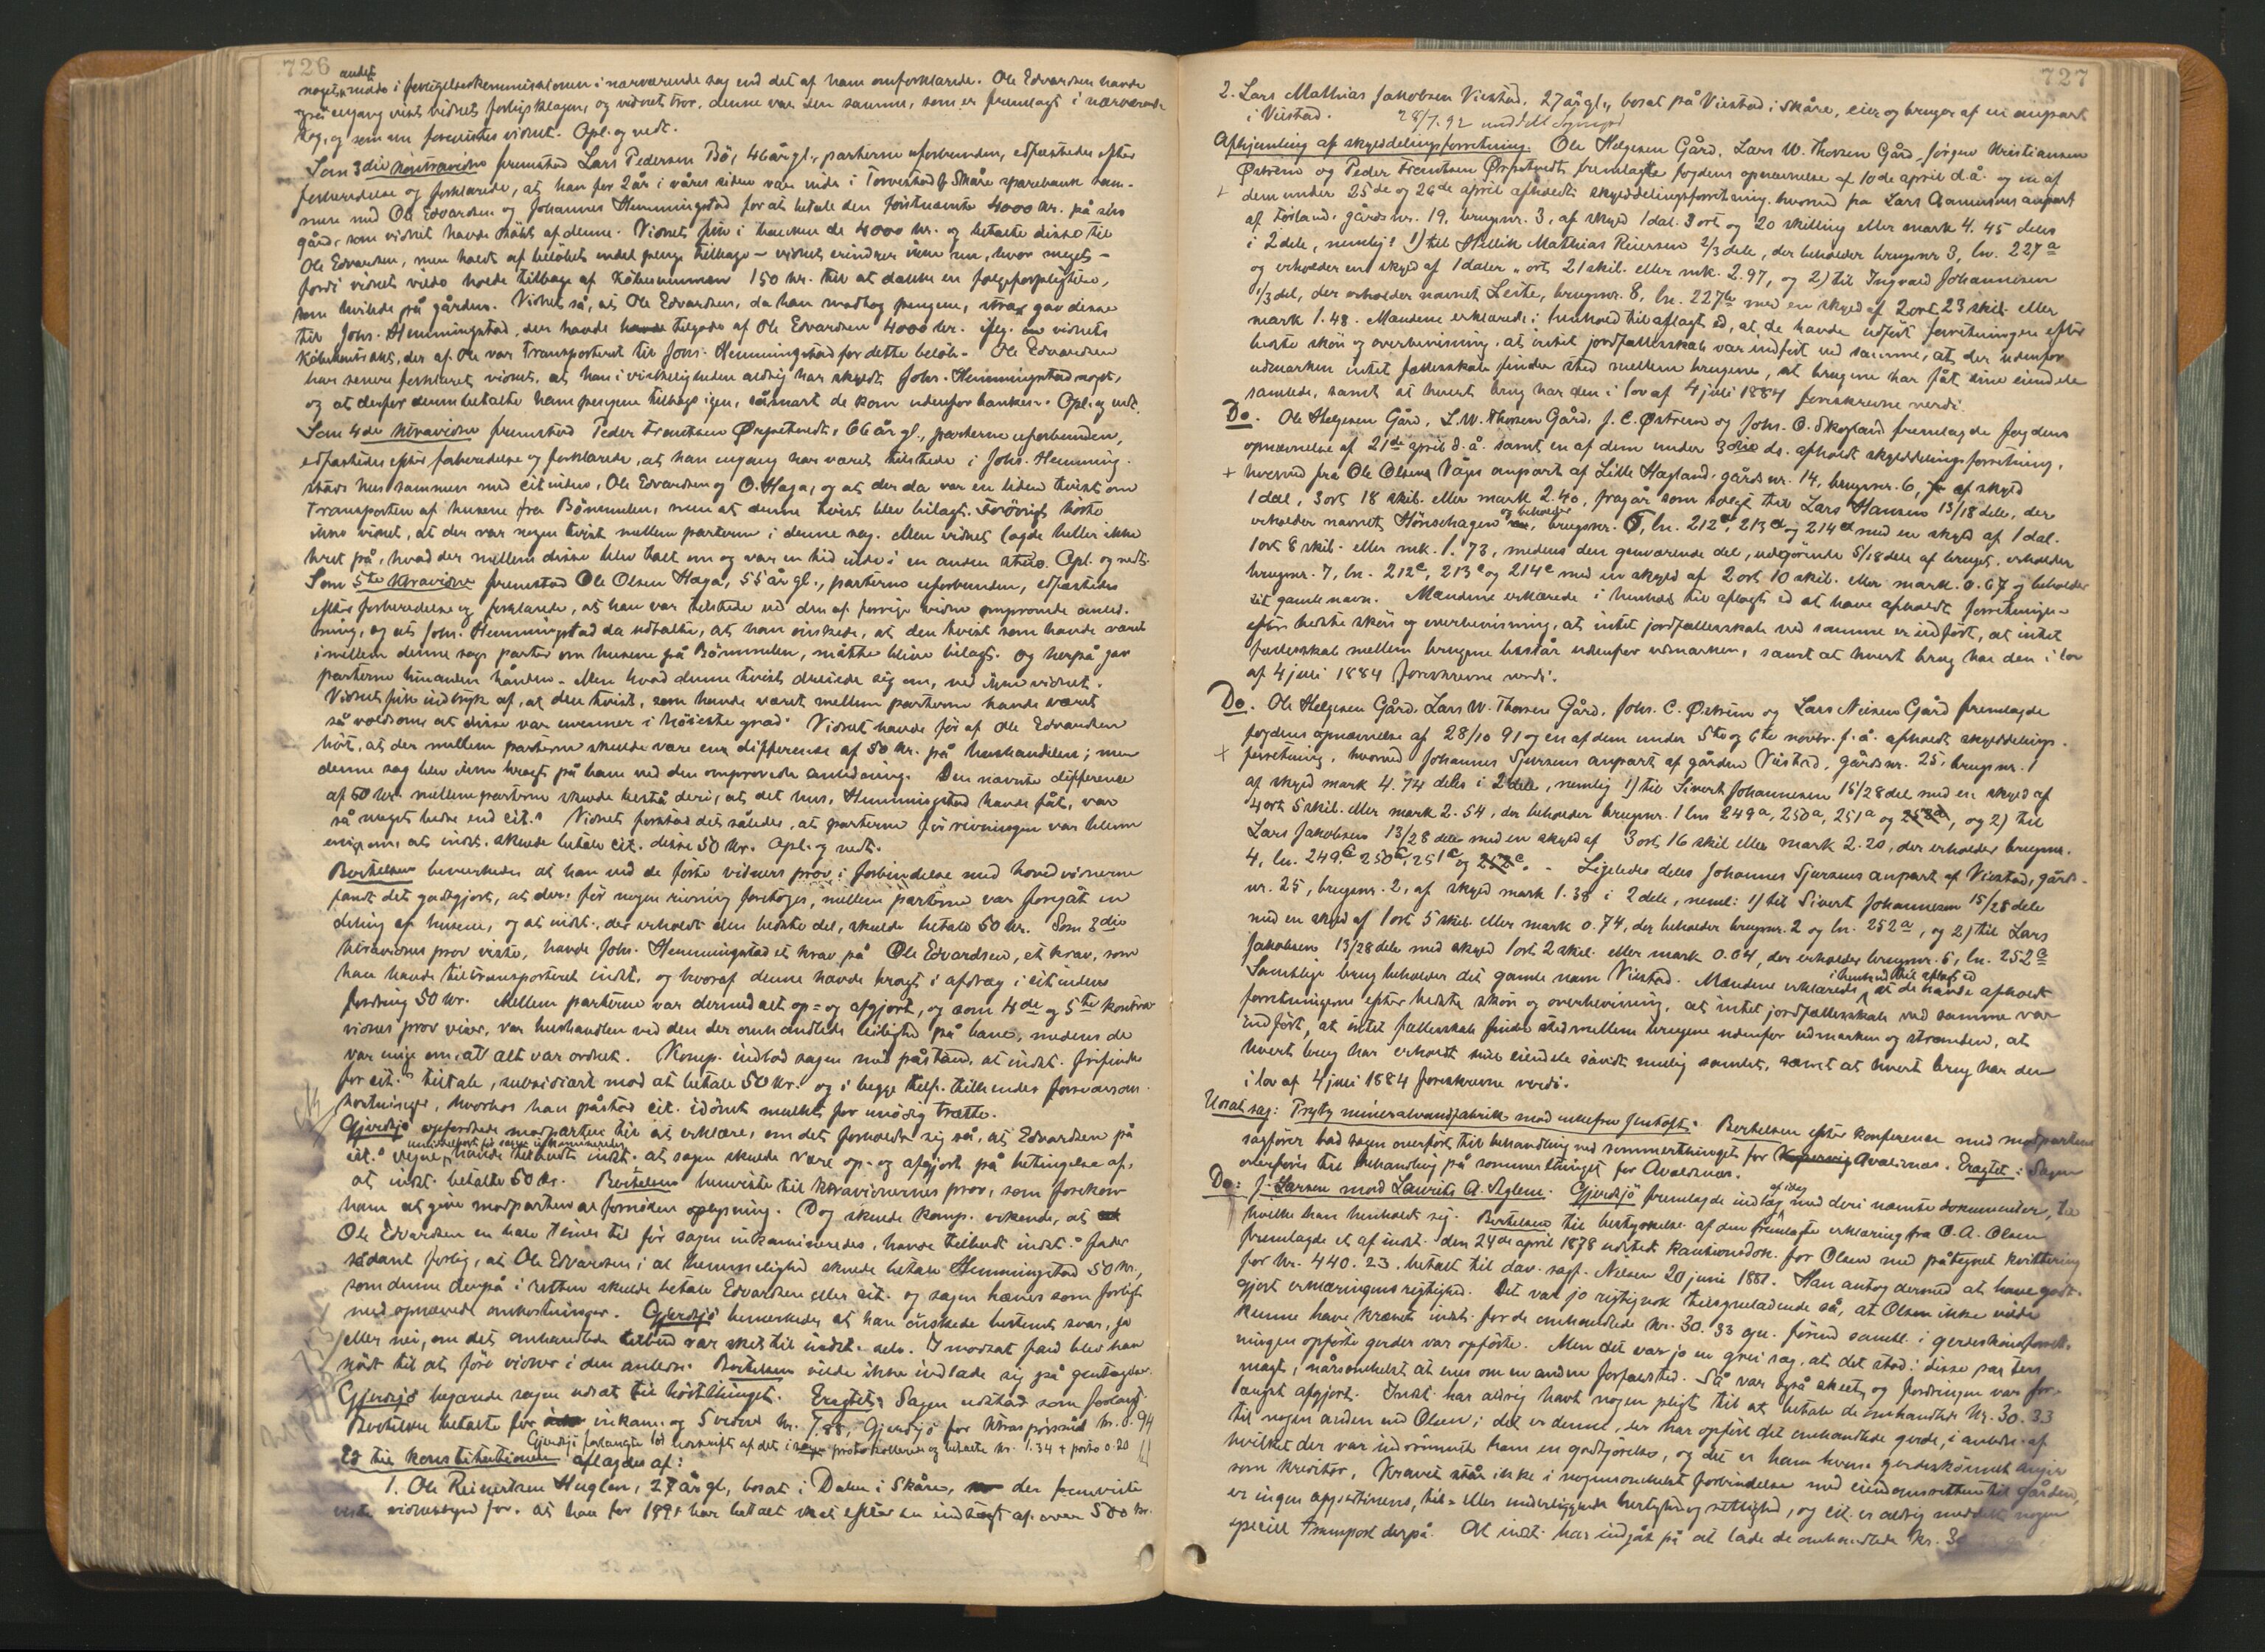 726
andet
noget, end i forligelseskommissionen i nærværende sag end det af ham omforklarede. Ole Edvardsen havde
også engang vist vidnet forligsklagen, og vidnet tror, denne var den samme, som er fremlagt i nærværende
sag, og som nu forevistes vidnet. Opl. og vedt.
Som 3die kontravidne fremstod Lars Pedersen Bö, 46 år gl., parterne uforbunden, edfæstedes efter
forberedelse og forklarede, at han for 2 år i våres siden var inde i Torvestad & Skåre sparebank sam-
men med Ole Edvardsen og Johannes Hemmingstad for at betale den förstnævnte 4000 kr. på sin
gård, som vidnet havde kjöbt af denne. Vidnet fik i banken de 4000 kr. og betalte disse til
Ole Edvardsen, men holdt af beløbet endel penge tilbage - vidnet erindrer ikke nu, hvor meget -
fordi vidnet vilde holde tilbage af kjöbesummen 150 kr. til at dække en følgeforpligtelse,
som hvilede på gården. Vidnet så, at Ole Edvardsen, da han modtog pengene, strax gav disse
til Johs. Hemmingstad, der havde tilgode af Ole Edvardsen 4000 kr. ifølg. vidnets
kjöbekontrakt, der af Ole var transporteret til Johs. Hemmingstad for dette beløb. Ole Edvardsen
har senere forklaret vidnet, at han i virkeligheden aldrig har skyldt Johs. Hemmingstad noget,
og at derfor denne betalte ham pengene tilbage igen, såsnart de kom udenfor banken. Opl. og vedt.
Som 4de ktravidne fremstod Peder Træntsen Ørpetvedt, 66 år gl., parterne uforbunden,
edfæstedes efter forberedelse og forklarede, at han engang har været tilstede i Johs. Hemming-
stads hus sammen med citinden, Ole Edvardsen og O. Haga, og at der da var en liden tvist om
transporten af husene fra Bömmelen, men at denne tvist blev bilagt. Forövrigt hörte
ikke vidnet, at der var nogen tvist mellem parterne i denne sag. Men vidnet lagde heller ikke
bret på, hvad der mellem disse blev talt om og var en tid ude i en anden stue. Opl. og vedt.
Som 5te ktravidne fremstod Ole Olsen Haga, 55 år gl., parterne uforbunden, edfæstedes
efter forberedelse og forklarede, at han var tilstede ved den af forrige vidne omprovede anled-
ning, og at Johs. Hemmingstad da udtalte, at han önskede, at den tvist som havde været
imellem denne sags parter om husene på Bömmelen, måtte blive bilagt. Og herpå gav
parterne hinanden hånden. Men hvad denne tvist dreiede sig om, ved ikke vidnet.
Vidnet fik indtryk af, at den tvist, som havde været mellem parterne havde været
så voldsom at disse var uvenner i höieste grad. Vidnet havde før af Ole Edvardsen
hört, at der mellem parterne skulde være en difference af 50 kr. på hushandelen; men
denne sag blev ikke bragt på bane ved den omprovede anledning. Den nævnte difference
af 50 kr. mellem parterne skulde bestå deri, at det hus, Hemmingstad havde fåt, var
så meget bedre end cit.s Vidnet forstod det således, at parterne för rivningen var blevne
enige om, at indst. skulde betale cit. disse 50 kr. Opl. og vedt.
Bertelsen bemerkede at han ved de förte vidners prov i forbindelse med hovedvidnerne
fandt det godtgjort, at der, för nogen rivning foretoges, mellem parterne var foregåt en
deling af husene, og at indst., der erholdt den bedste del, skulde betale 50 kr. Som 3die
ktravidnes prov viste, havde Johs. Hemmingstad et krav på Ole Edvardsen, et krav, som
han havde tiltransporteret indst. og hvoraf denne havde bragt i afdrag i citindens
fordring 50 kr. Mellem parterne var dermed alt op- og afgjort, og som 4de og 5te kontra-
vidnes prov viser, var hushandlen ved den der omhandlede leilighed på bane, medens de
var enige om, at alt var ordnet. Komp. indlod sagen med påstand, at indst. frifindes
for cit.s tiltale, subsidiært mod at betale 50 kr. og i begge tilf. tilkendes forsvarsom-
kostninger, hvorhos han påstod cit. idömt mulkt for unödig trætte.
Gjerdsjö opfordrede modparten til at erklære, om det forholdt sig så, at Edvardsen på
umiddelbart för sagens inkaminerelse
cit.s vegne, havde tilbudt indst. at sagen skulde være op- og afgjort på betingelse af,
at indst. betalte 50 kr. Bertelsen henviste til ktravidnernes prov, som forekom
ham at give modparten al fornöden oplysning. Dog skulde komp. erkende, at
Ole Edvardsen en halv times tid för sagen inkamineredes, havde tilbudt indst.s fader
sådant forlig, at Ole Edvardsen i al hemmelighed skulde betale Hemmingstad 50 kr.,
som denne derpå i retten skulde betale Edvardsen eller cit. og sagen hæves som forligt
med ophævede omkostninger. Gjerdsjö bemerkede, at han önskede bestemt svar, ja
eller nei, om det omhandlede tilbud var sket til indst. selv. I modsat fald blev han
nödt til at före vidner i den anledn. Bertelsen vilde ikke indlade sig på gentagelse.
Gjerdsjö begærede sagen udsat til hösttinget. Eragtet: Sagen udstod som forlangt.
Bertelsen betalte for inkam. og 5 vidner kr. 7.88, Gjerdsjö for ktraspörsmål kr. 0.94
Gjerdsjö forlangte lös beskrift af det i sagen protokollerede og betalte kr. 1.34 + porto 0.20
Ed til konstitutionen aflagdes af:
1. Ole Reinertsen Huglen, 27 år gl., bosat i Dalen i Skåre, der fremviste
viste vidnesbyrd for, at han for 1891 har betalt skat efter en indtægt af over 500 kr.
727
2. Lars Mathias Jakobsen Viestad, 27 år gl., bosat på Viestad i Skåre, eier og bruger af en anpart
i Viestad.
28/7.92
Afhjemling af skylddelingsforretning. Ole Helgesen Gård, Lars W. Thorsen Gård, Jörgen Kristiansen
Östrem og Peder Træntsen Ørpetvedt fremlagde fogdens opnævnelse af 10de april d.å. og en af
+ dem under 25de og 26de april afholdt skylddelingsforretning, hvorved fra Lars Aamunds anpart
af Förland, gårds nr. 19, brugsnr. 3, af skyld 1 dal. 3 ort og 20 skilling eller mark 4.45 deles
i 2 dele, nemlig: 1) til Hellik Mathias Reiersen 2/3 dele, der beholder brugsnr 3, ln. 227a
og erholder en skyld af 1 daler „ ort, 21 skil. eller mk. 2.97, og 2) til Ingvald Johannesen
1/3 del, der erholder navnet Leite, brugsnr. 8, ln. 227b med en skyld af 2 ort 23 skil. eller
mark 1.48. Mændene erklærede i henhold til aflagt ed, at de havde udfört forretningen efter
bedste skön og overbevisning, at intet jordfællesskab var indfört ved samme, at der udenfor
udmarken intet fællesskab finder sted mellem brugene, at brugene har fåt sine eiendele
samlede, samt at hvert brug har den i lov af 4 juli 1884 foreskrevne verdi.
Do. Ole Helgesen Gård, L. W. Thorsen Gård, J. C. Østrem og Johs. O. Skogland fremlagde fogdens
opnævnelse af 21de april d.å. samt en af dem under 3die ds. afholdt skylddelingsforretning,
+ hvorved fra Ole Olsens Våges anpart af Lille Hagland, gårds nr. 14, brugsnr. 6, af skyld
1 dal., 3 ort 18 skil. eller mark 2.40, fragår som solgt til Lars Hansen 13/18 dele, der
og beholder
erholder navnet Hönsehagen, brugsnr. 6, ln. 212d, 213d og 214d med en skyld af 1 dal.
1 ort 8 skil. eller mk. 1.73, medens den genværende del, udgörende 5/18 dele af bruget, erholder
brugsnr. 7, ln. 212e, 213e og 214e med en skyld af 2 ort 10 skil. eller mark. 0.67 og beholder
sit gamle navn. Mændene erklærede i henhold til aflagt ed at have afholdt forretningen
efter bedste skön og overbevisning, at intet jordfællesskab ved samme er indfört, at intet
fællesskab mellem brugene består udenfor udmarken, samt at hvert brug har den i lov
af 4 juli 1884 foreskrevne verdi.
Do. Ole Helgesen Gård, Lars W. Thorsen Gård, Johs. C. Østrem og Lars Nielsen Gård fremlagde
fogdens opnævnelse af 28/10 91 og en af dem under 5te og 6te novbr. f.å. afholdt skylddelings-
+ forretning, hvorved Johannes Sjursens anpart af gården Viestad, gårds nr. 25, brugsnr. 1
af skyld mark 4.74 deles i 2 dele, nemlig 1) til Sivert Johannesen 15/28 del med en skyld af
4 ort 5 skil. eller mark 2.54, der beholder brugsnr. 1 lnr 249a, 250a, 251a og 252a, og 2) til
Lars Jakobsen 13/28 dele med en skyld af 3 ort 16 skil eller mark 2.20, der erholder brugsnr.
4, ln. 249c 250c, 251c og 252c. - Ligeledes deles Johannes Sjursens anpart af Viestad, gårds-
nr. 25, brugsnr. 2, af skyld mark 1.38 i 2 dele, neml: 1) til Sivert Johannesen 15/28 dele
med en skyld af 1 ort 5 skil. eller mark 0.74, der beholder brugsnr. 2 og ln. 252a, og 2) til Lars
Jakobsen 13/28 dele med skyld 1 ort 2 skil. eller mark 0.64, der erholder brugsnr. 5, ln. 252c
Samtlige brug beholder det gamle navn Viestad. Mændene erklærede, at de havde afholdt
i henhold til aflagt ed
forretningerne efter bedste skön og overbevisning, at intet jordfællesskab ved samme var
indfört, at intet fællesskab finder sted mellem brugene udenfor udmarken og stranden, at
hvert brug har erholdt sine eiendele såvidt mulig samlet, samt at hvert brug har den
i lov af 4 juli 1884 foreskrevne verdi.
Udsat sag: Pryty mineralvandfabrik mod enkefru Jentoft. Bertelsen efter konference med modpartens
sagförer bad sagen overfört til behandling ved sommerthinget for Kopervig Avaldsnæs. Eragtet: Sagen
overføres til behandling på sommerthinget for Avaldsnæs.
Do: J. Larsen mod Laurits A. Aglen. Gjerdsjö fremlagde indlæg af idag med deri nævnte dokumenter, til
hvilke han henholdt sig. Bertelsen til bestyrkelse af den fremlagte erklæring fra O. A. Olsen
fremlagde et af indst. den 24de april 1878 udstedt kautionsdok. for Olsen med påtegnet kvittering
for kr. 440.23, betalt til dav. sagf. Nelsen 20 juni 1881. Han antog dermed at have godt-
gjort erklæringens rigtighed. Det var jo rigtignok tilsyneladende så, at Olsen ikke vilde
kunne have krævet indst. for de omhandlede kr. 30.33 öre. förend samtl. i gerdeskönsforret-
ningen opförte gerder var opförte. Men det var jo en grei sag, at det stod i disse parters
magt, nårsomhelst at enes om en anden forfaldstid. Så var også skeet, og fordringen var for-
længst afgjort. Indst. har aldrig havt nogen pligt til at betale de omhandlede kr. 30.33
til nogen anden end Olsen; det er denne, der har opfört det omhandlede gerde, i anledn. af
hvilket der var indrömmet ham en godtgjörelse, og det er ham hvem gerdeskönnet angir
som kreditor. Kravet står ikke i nogensomhelst forbindelse med eiendomsretten til gården,
er ingen appertinens, til- eller underliggende herlighed og rettighed, og cit. er aldrig meddelt nogen
speciel transport derpå. At indst. har indgåt på at lade de omhandlede kr. 30